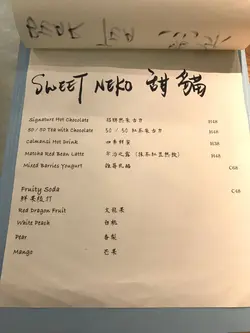 SWEET NEKO 甜貓
Signature Hot Chocolate 招牌熱朱古力
50 / 50 Tea with Chocolate 50 / 50 紅茶朱古力
Calmansi Hot Drink 四季鮮蜜
Matcha Red Bean Latte 牛治之露 (抹茶紅豆熱飲)
Mixed Barries Yougurt 雜莓乳酪
Fruity Soda C48
鮮果梳打
Red Dragon Fruit 火龍果
White Peach 白桃
Pear 香梨
Mango 芒果